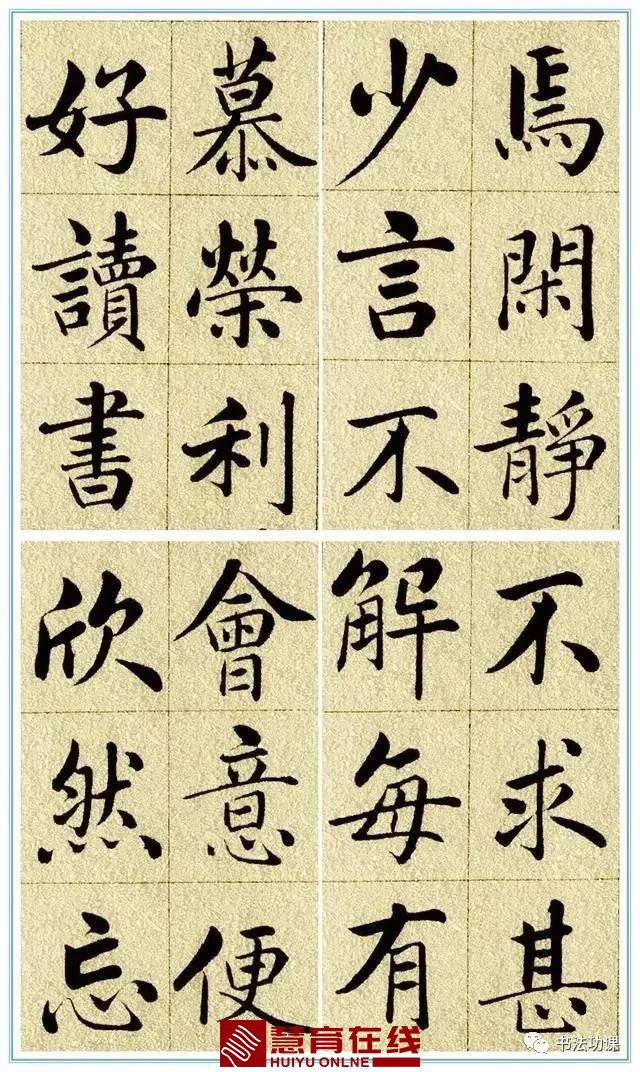 焉閑靜
少言不
慕榮利
好讀書
不求甚
解每有
會意便
欣然忘
慧育在线
HUIYU ONLINE
书法功课